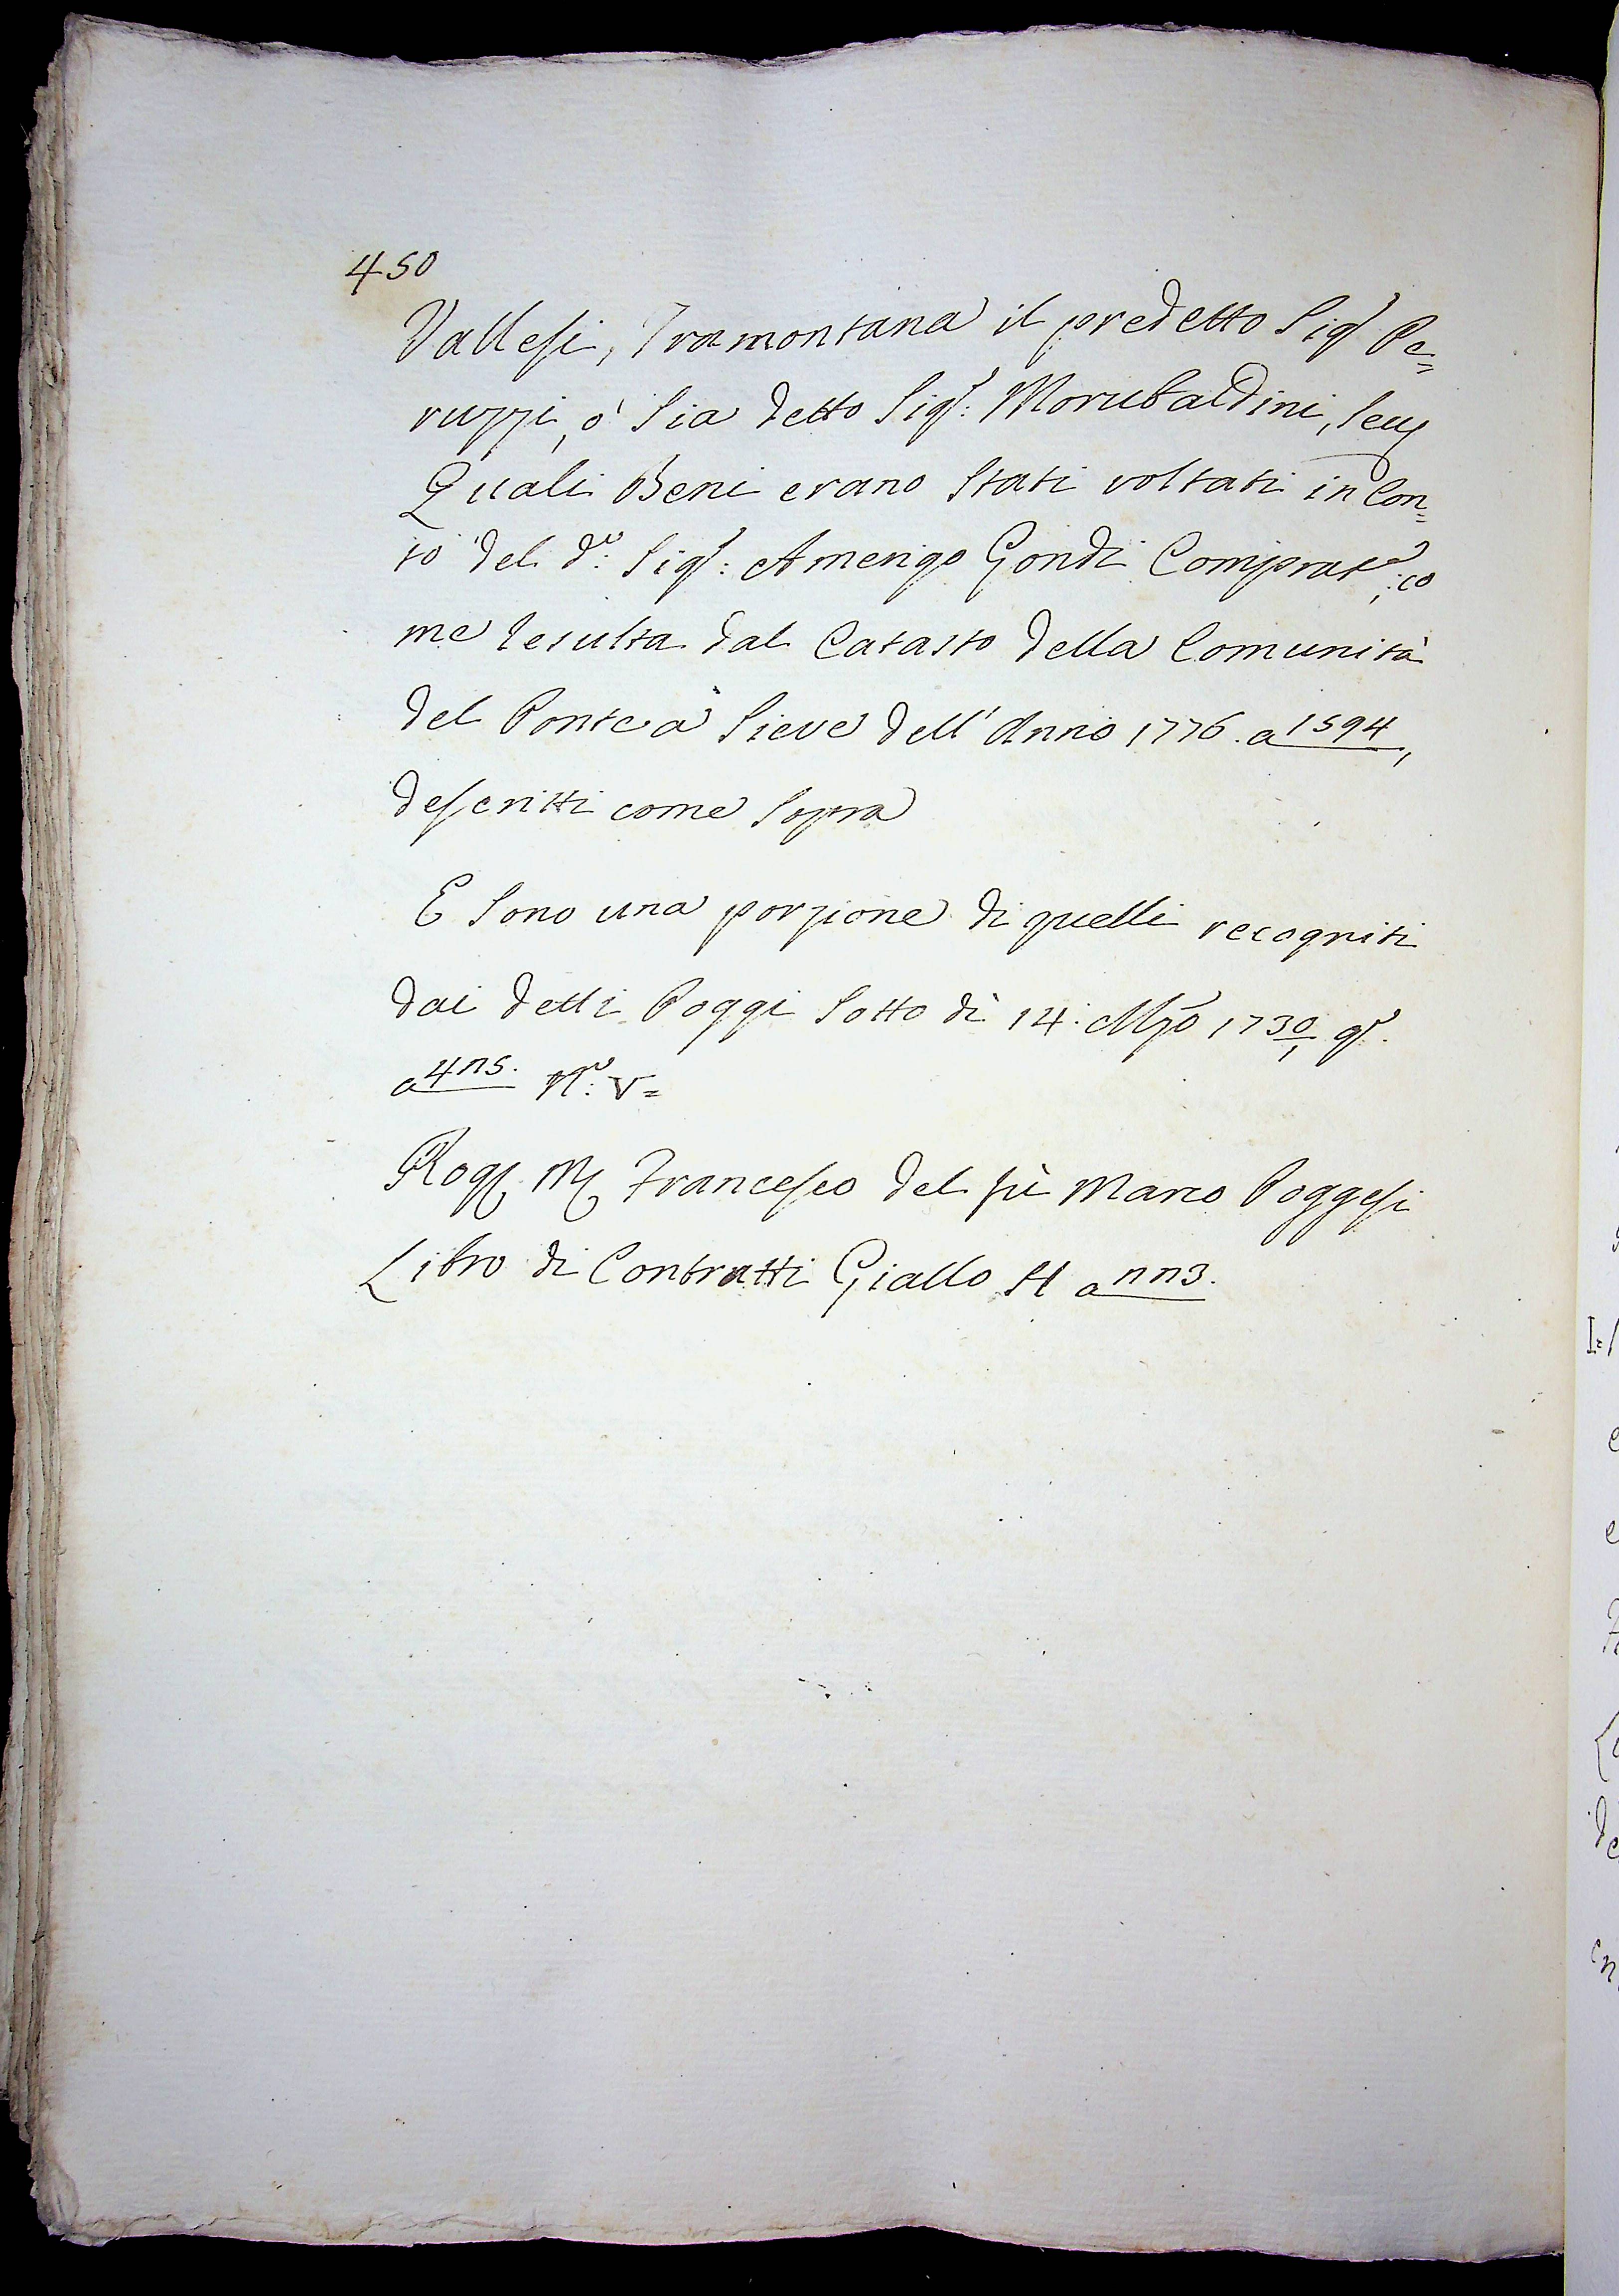 450
Vallesi, Tramontana il predetto Sig.r Pe=
ruzzi, ò Sia detto Sig.r: Morubaldini, Seu
Quali Beni erano Stati voltati in Con=
to del d.o: Sig.r: Amerigo Gondi Comprat.e; co
me resulta dal Catasto della Comunità
del Ponte à Sieve dell' Anno 1776. a 1594,
descritti come Sopra
E Sono una porzione di quelli recogniti
dai detti Poggi Sotto dì 14. Mzo 1730/1 q.o
a 4115. N.o: V=
Rog. M Francesco del fù Marco Poggesi
Libro di Contratti Giallo H a 113.